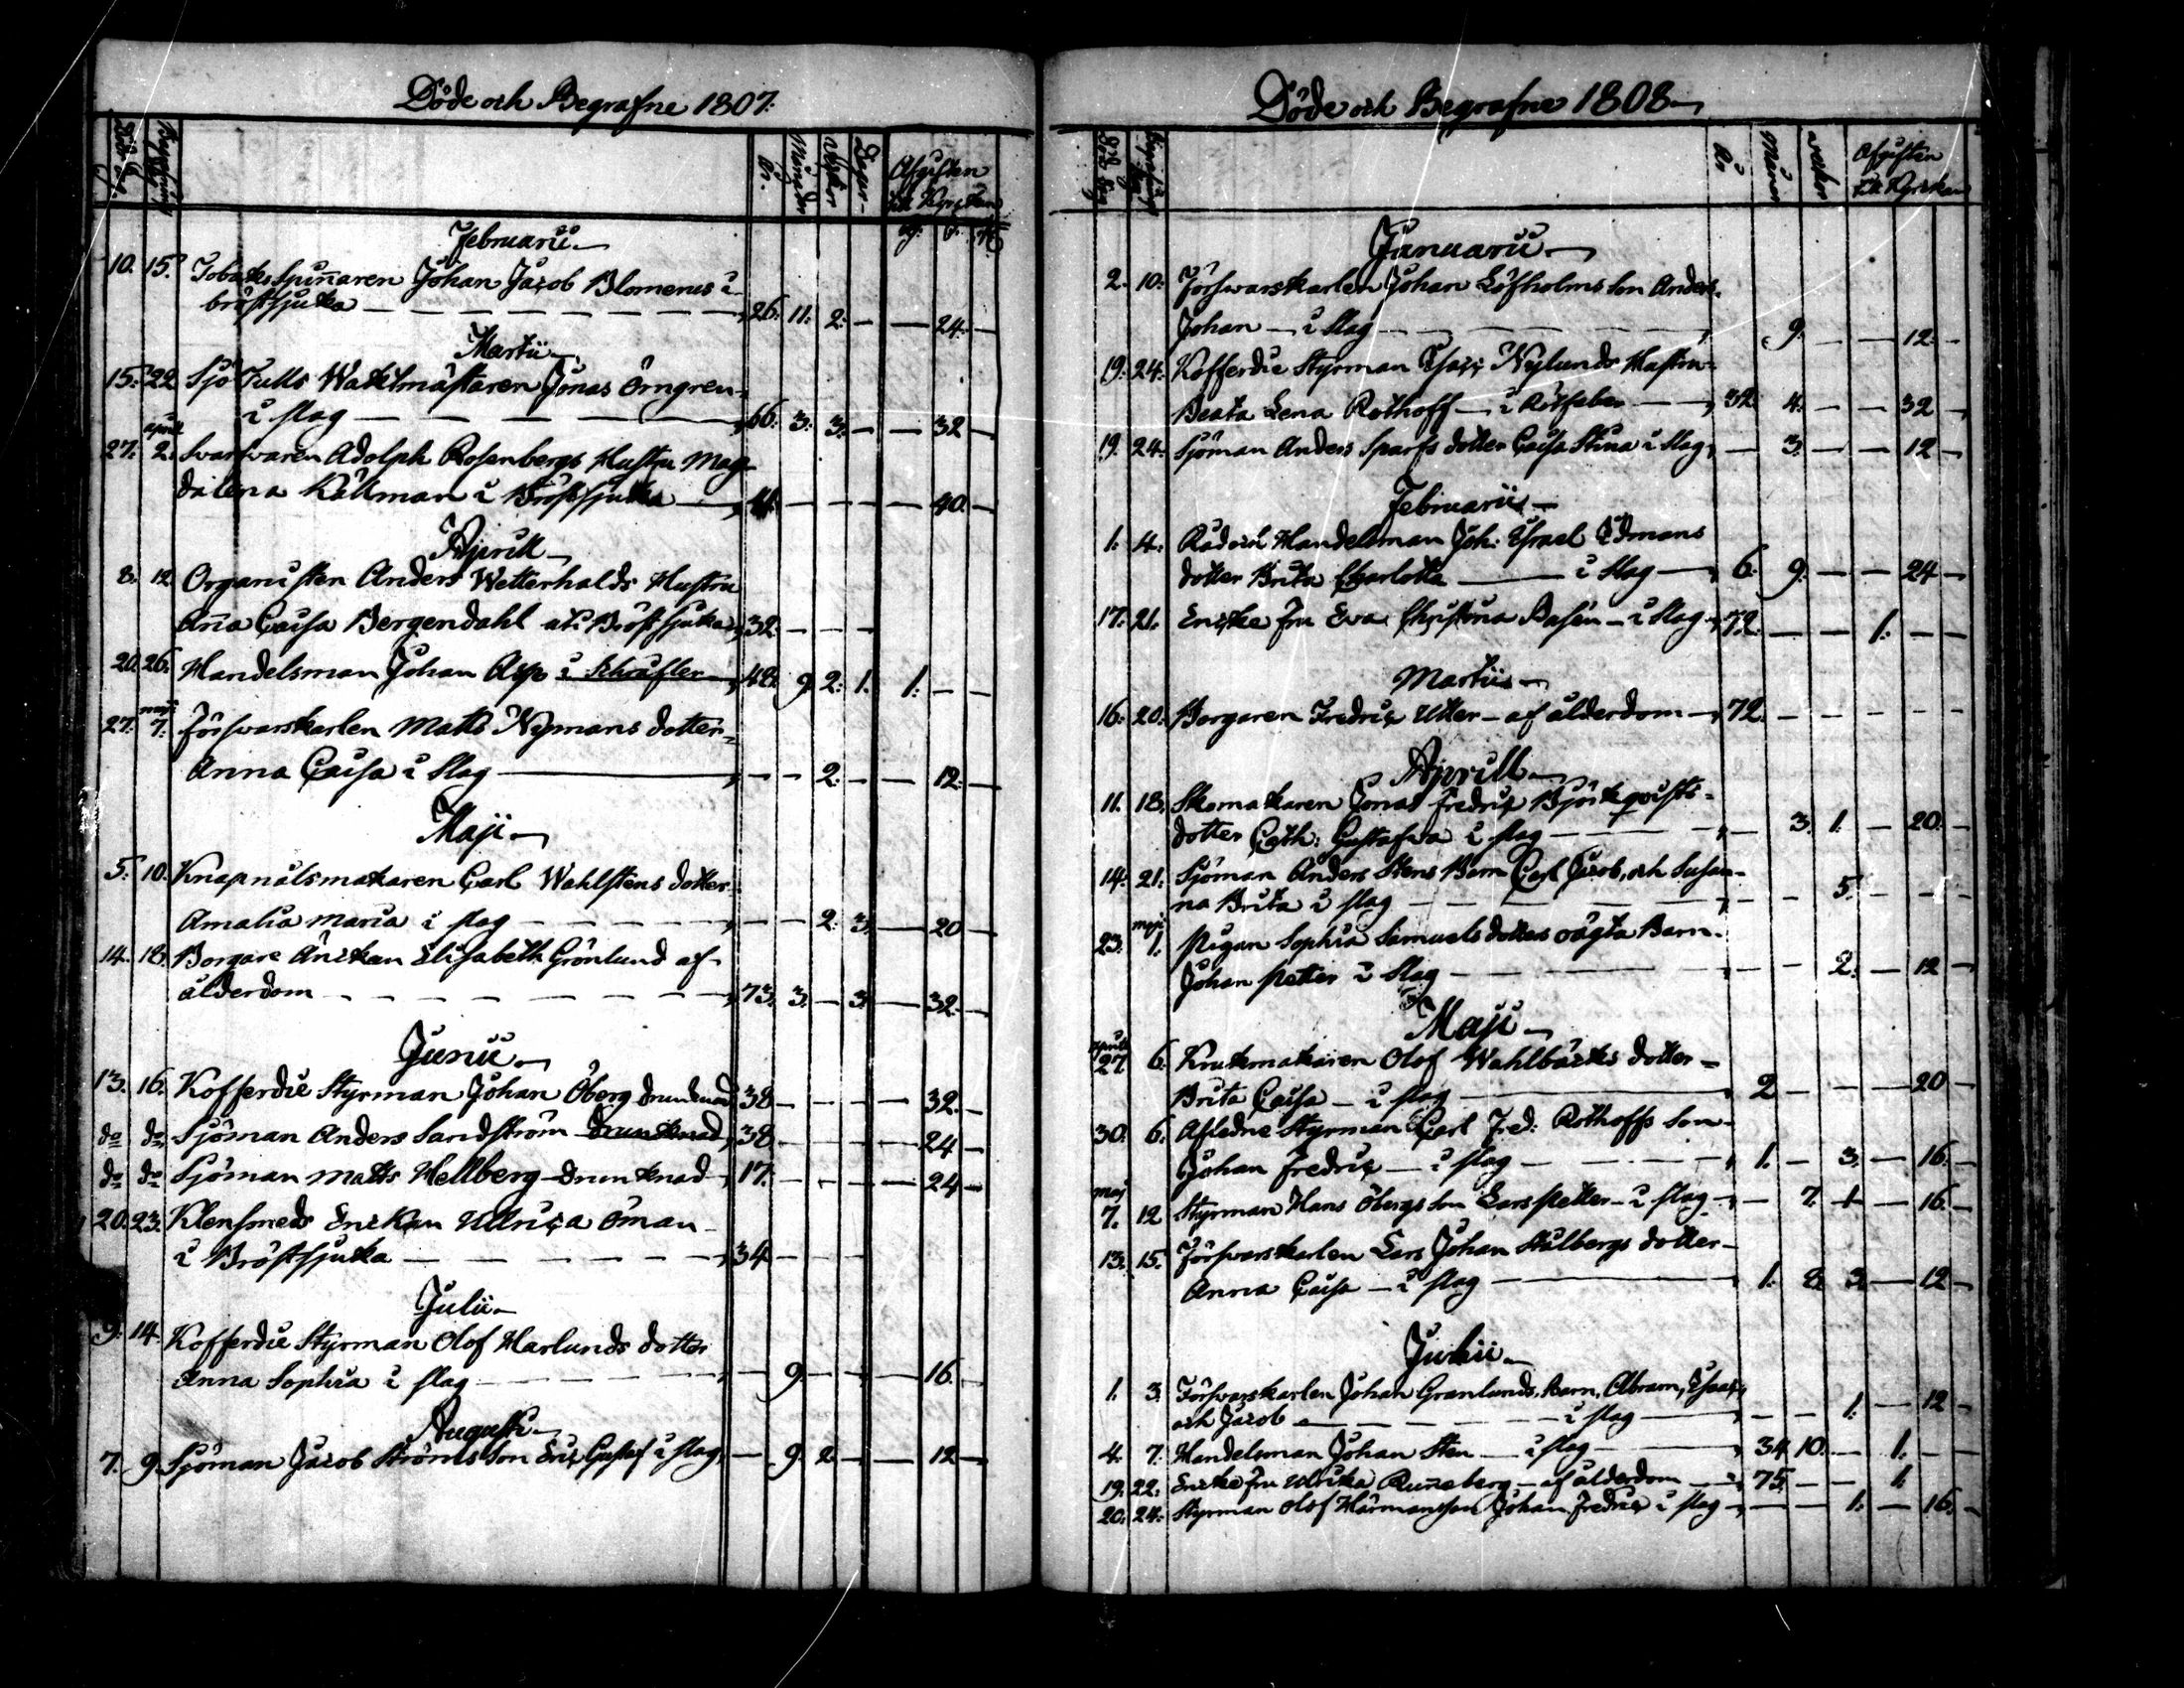 Döde och Begrafne 1807.
Död dag. Begrafnings dag År. Månader Veckor Dagar Afgiften till Kyrckan
Februarii
10. 15. Tobaks Spiñaren Johan Jacob Blomerus i
bröstsjuka 26. 11. 2. 24.
Martii
15. 22 Sjö Tulls Wacktmästaren Jonas Örngren
i slag 66. 3. 3. 32
april
27. 2. Svarfvaren Adolph Rosenbergs Hustru Mag
dalena Källman i Bröstsjuka 40.
Aprill
8. 12. Organisten Anders Wetterhalds Hustru
Aña Caisa Bergendahl uti Bröstsjuka 32.
20. 26. Handelsman Johan Asp i 42. 9. 2. 1. 1.
maji
27. 7. Försvarskarlen Matts Nymans dotter
Anna Caisa i slag 2. 12.
Maji
5. 10. Knapnålsmakaren Carl Wahlstens dotter
Amalia Maria i slag 2. 3. 20
14. 18. Borgare Änckan Elisabeth Grönlund af
ålderdom 73. 3. 3. 32.
Junii
13. 16. Kofferdie Styrman Johan Öberg drunknad 38 32.
do do Sjöman Anders Sandström drunknad 38 24
do do Sjöman Matts Hellberg drunknad 17. 24
20. 23. Klensmeds Enckan Ullrica Öman
i Bröstsjuka 34
Julii
9. 14. Kofferdie Styrman Olof Harlunds dotter
Anna Sophia i slag 9. 16.
Augusti
7. 9. Sjöman Jacob Ströms son Eric Gustaf i slag 9. 2. 12
Döde och Begrafne 1808
Död dag Begrafnings dag År Månader veckor Afgiften till Kyrckan
Januarii
2. 10. Försvarskarlen Johan Löfholms son Anders
Johan i slag 9. 12.
19. 24. Kofferdie Styrman Isacc Nylunds Hustru
Beata Lena Rothoff i Rötfeber 32. 4. 32
19. 24. Sjöman Anders Sparfs dotter Caisa Stina i slag 3. 12
Februarii
1. 4. Råd och Handelsman Joh: Israel Edmans
dotter Brita Charlotta i slag 6. 9. 24
17. 21. Encke fru Eva Christina i slag 72. 1.
Martii
16. 20. Borgaren Fredric Utter af ålderdom 72.
Aprill
11. 18. Skomakaren Jonas Fredric Björkqvists
dotter Cath: Gustafva i slag 3. 1. 20.
14. 21. Sjöman Anders Stens Barn Carl Jacob, och Susan
na Brita i slag 5.
maji
23. 1. Pigan Sophia Samuels dotters oägta Barn
Johan Petter i slag 2. 12
Maji
aprill
27 6. Krukmakaren Olof Wahlbäcks dotter
Brita Caisa i slag 2 20
30. 6. Afledne Styrman Carl Fred: Rothoffs son
Johan Fredric i slag 1. 3. 16.
maj
7. 12 Styrman Hans Öbergs son Lars Petter i slag 7. 1 16.
13. 15. Försvarskarlen Lars Johan Stålbergs dotter
Anna Caisa i slag 1. 8. 3 12
Junii
1. 3. Försvarskarlen Johan Granlunds Barn, Abram, Isaac,
och Jacob i slag 1. 12
4. 7. Handelsman Johan Sten i slag 34 10. 1.
19. 22. Encke fru Ulrika Runeberg af ålderdom 75. 1.
20. 24. Styrman Olof Härmans son Johan Fredric i slag 1. 16.